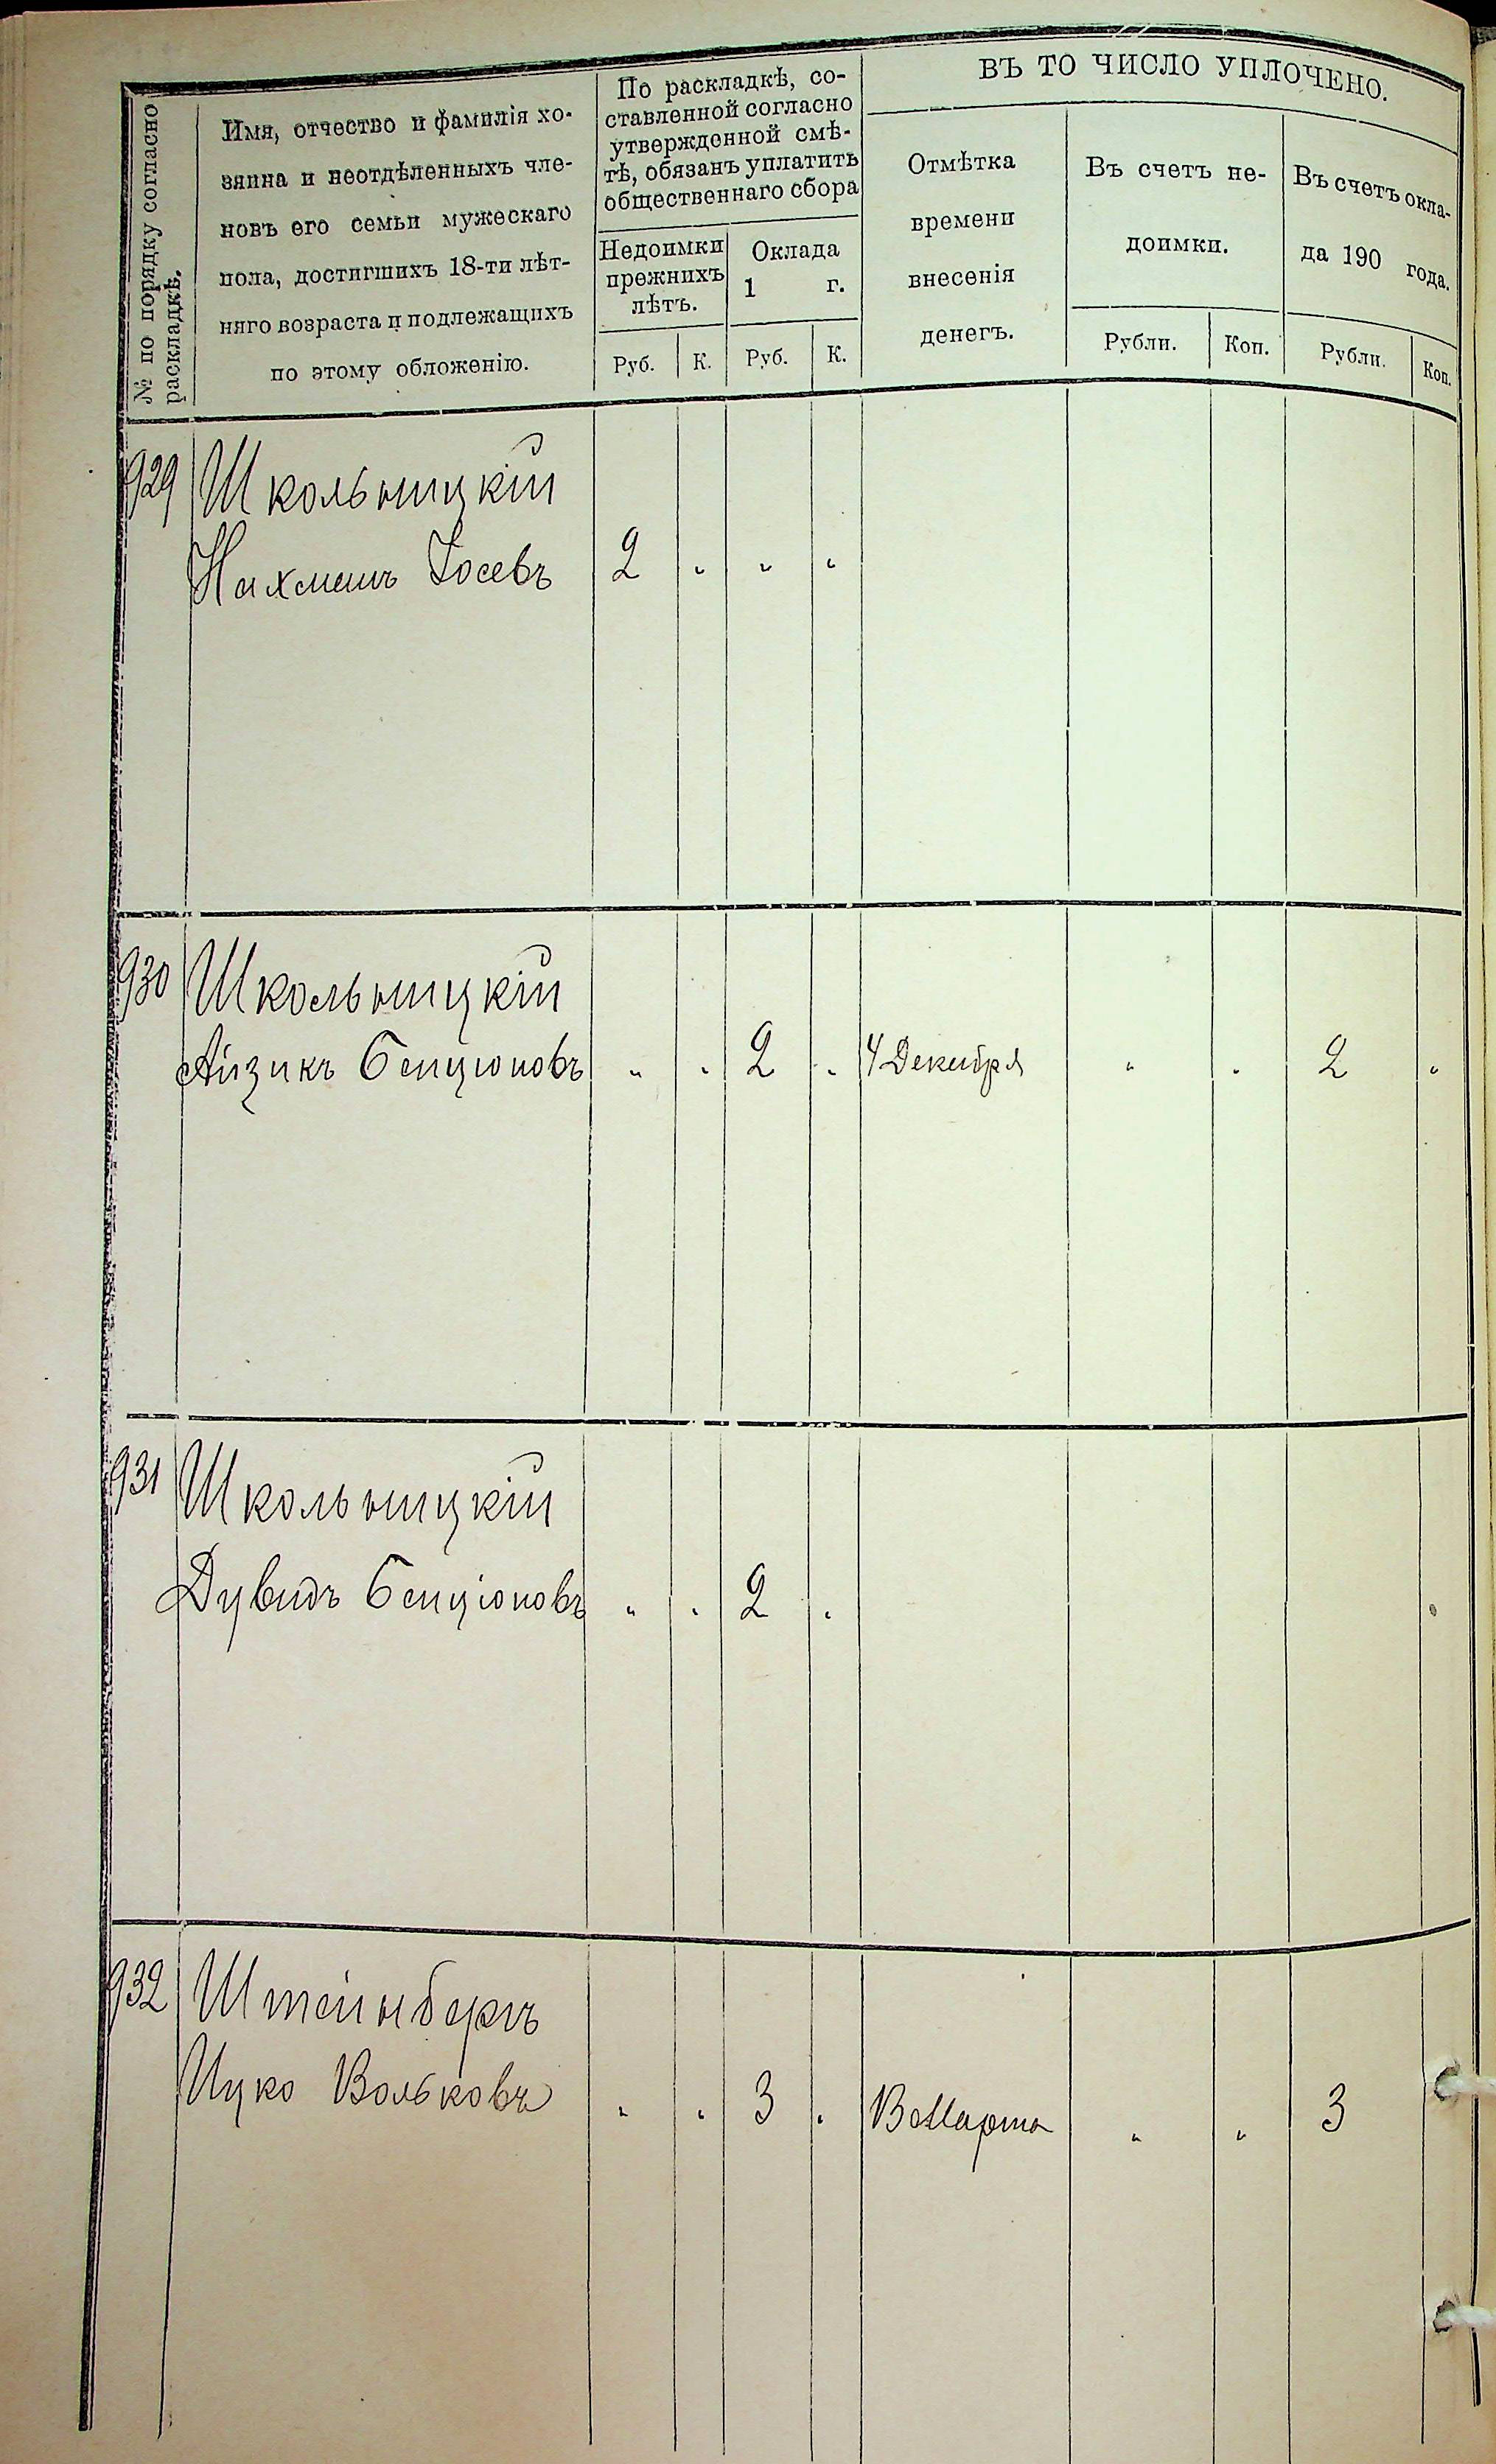 ВЪ ТО ЧИСЛО УПЛОЧЕНО.
№ по порядку согласно
раскладкѣ.
Имя, отчество и фамилія хо-
зяина и неотдѣленныхъ чле-
новъ его семьи мужескаго
пола, достигшихъ 18-ти лѣт-
няго возраста и подлежащихъ
по этому обложенію.
По раскладкѣ, со-
ставленной согласно
утвержденной смѣ-
тѣ, обязанъ уплатить
общественнаго сбора
Недоимки
прежнихъ
лѣтъ.
Оклада
1 г.
Руб. К. Руб. К.
Отмѣтка
времени
внесенія
денегъ.
Въ счетъ не-
доимки.
Рубли. Коп.
Въ счетъ окла-
да 190 года.
Рубли. Коп.
929 Школьницкій
Нахманъ Іосевъ 2 " " "
930 Школьницкій
Айзикъ Бенціоновъ " " 2 " 4 Декабря " " 2 "
931 Школьницкій
Дувидъ Бенціоновъ " " 2 "
932 Штейнбергъ
Ицко Вольковъ " " 3 " Марта " " 3